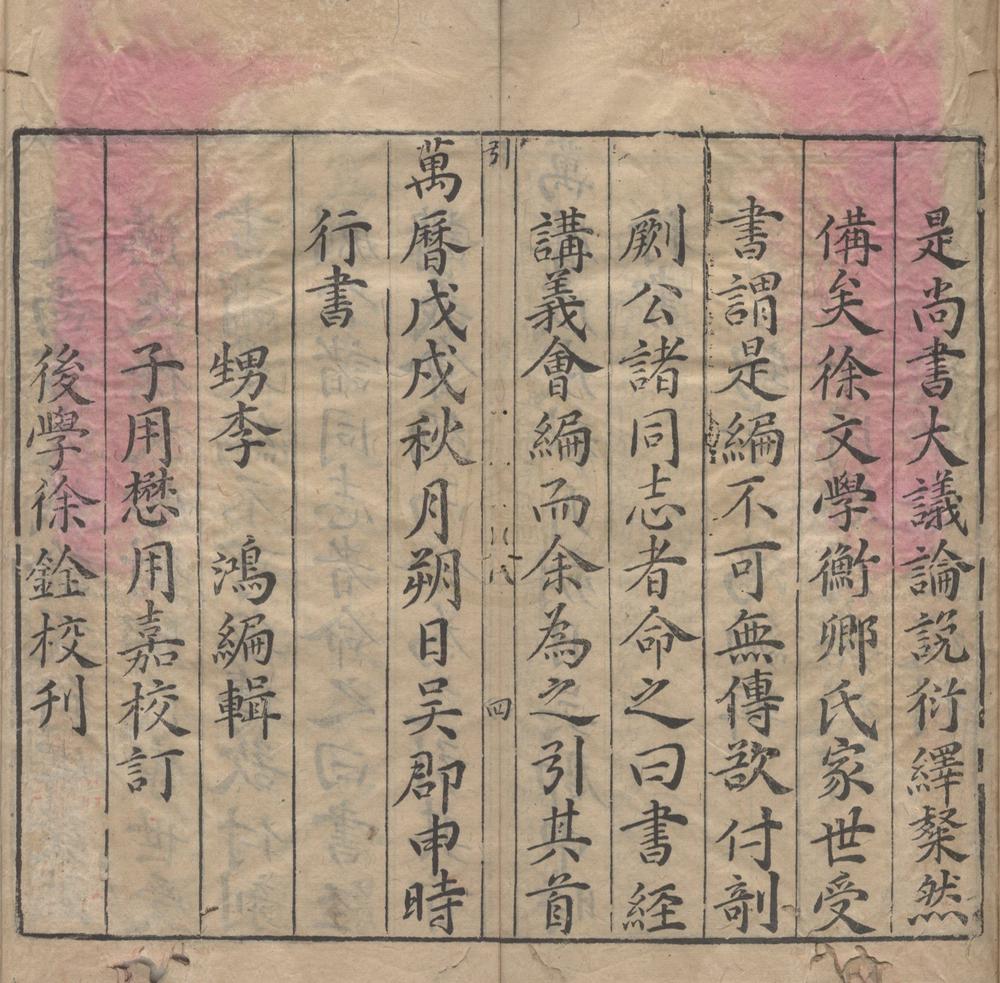 是尚書大議論說衍繹粲然
備矣徐文學衡卿氏家世受
書謂是編不可無傳欲付剖
劂公諸同志者命之曰書經
講義會編而余為之引其首
引
四
萬曆戊戌秋月朔日吳郡申時
行書
甥李 鴻編輯
子用懋用嘉校訂
後學徐銓校刊